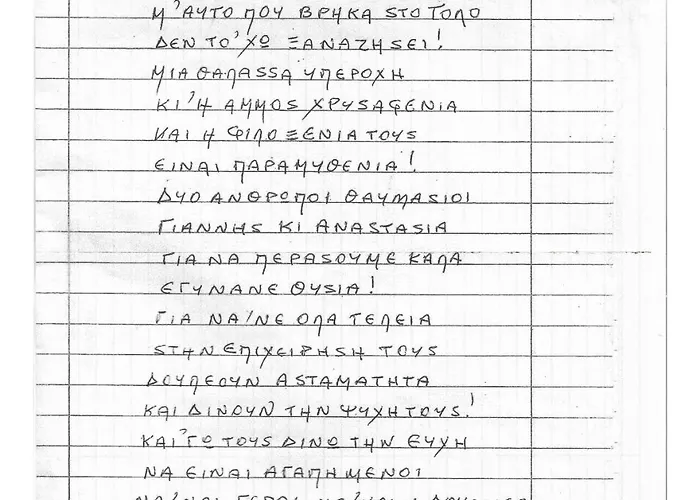 Μ'ΑΥΤΟ ΠΟΥ ΒΡΗΚΑ SΤΟ ΤΟΛΟ
ΔΕΝ ΤΟ'ΧΩ ΞΑΝΑΖΗSΕΙ!
ΜΙΑ ΘΑΛΑSSΑ ΥΠΕΡΟΧΗ
ΚΙ'Η ΑΜΜΟS ΧΡΥSΑΦΕΝΙΑ
ΚΑΙ Η ΦΙΛΟΞΕΝΙΑ ΤΟΥS
ΕΙΝΑΙ ΠΑΡΑΜΥΘΕΝΙΑ!
ΔΥΟ ΑΝΘΡΩΠΟΙ ΘΑΥΜΑSΙΟΙ
ΓΙΑΝΝΗS ΚΙ ΑΝΑSΤΑSΙΑ
ΓΙΑ ΝΑ ΠΕΡΑSΟΥΜΕ ΚΑΛΑ
ΕΓΥΝΑΝΕ ΘΥSΙΑ!
ΓΙΑ ΝΑ'ΝΕ ΟΛΑ ΤΕΛΕΙΑ
SΤΗΝ ΕΠΙΧΕΙΡΗSΗ ΤΟΥS
ΔΟΥΛΕΟΥΝ ΑSΤΑΜΑΤΗΤΑ
ΚΑΙ ΔΙΝΟΥΝ ΤΗΝ ΨΥΧΗ ΤΟΥS!
ΚΑΙ'ΓΩ ΤΟΥS ΔΙΝΩ ΤΗΝ ΕΥΧΗ
ΝΑ ΕΙΝΑΙ ΑΓΑΠΗΜΕΝΟΙ